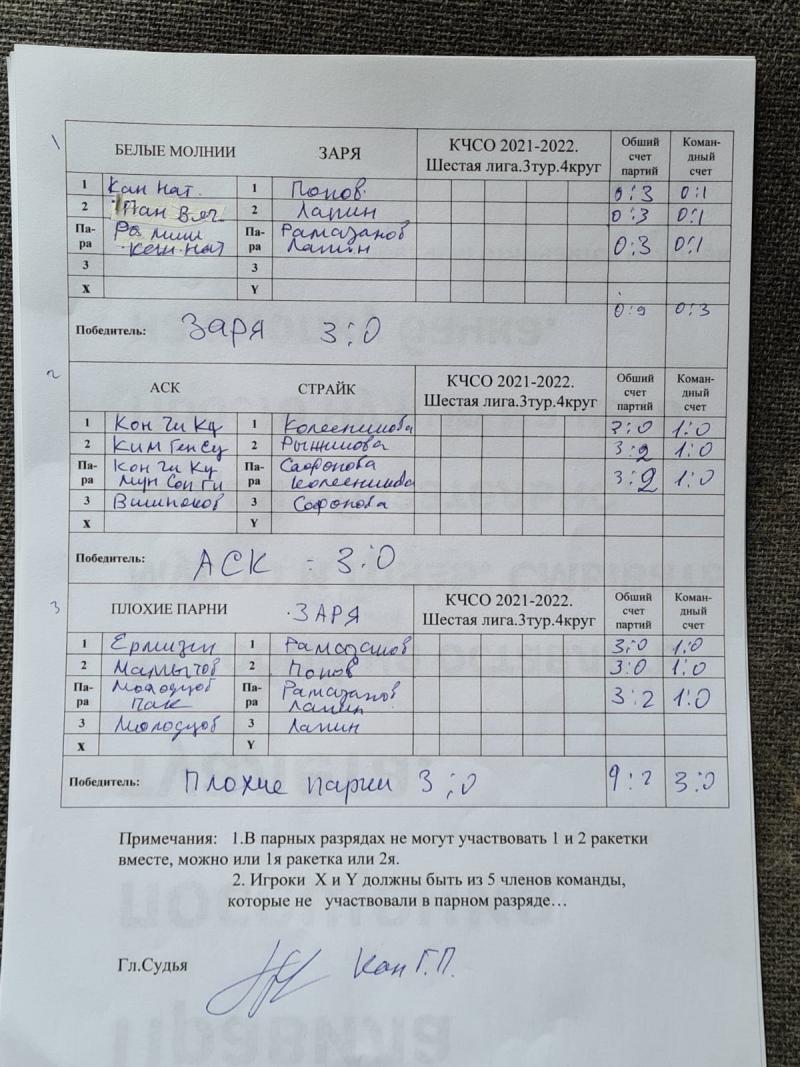 1
БЕЛЫЕ МОЛНИИ ЗАРЯ КЧСО 2021-2022. Шестая лига.3тур.4круг Обший счет партий Коман-дный счет
1 Кан Нат. 1 Попов 0:3 0:1
2 Пан Вяч. 2 Лапин 0:3 0:1
Па-ра Кан Нат Па-ра Рамазанов Лапин 0:3 0:1
3 3
X Y
0:9 0:3
Победитель: Заря 3:0
2
АСК СТРАЙК КЧСО 2021-2022. Шестая лига.3тур.4круг Обший счет партий Коман-дный счет
1 Кон Чи Ку 1 Колесникова 3:0 1:0
2 Ким Ген Су 2 3:2 1:0
Па-ра Кон Чи Ку Мун Сон Ги Па-ра Сафонова Колесникова 3:2 1:0
3 3 Софонова
X Y
Победитель: АСК - 3:0
3
ПЛОХИЕ ПАРНИ ЗАРЯ КЧСО 2021-2022. Шестая лига.3тур.4круг Обший счет партий Коман-дный счет
1 1 Рамазанов 3:0 1:0
2 2 Попов 3:0 1:0
Па-ра Молодцов Пак Па-ра Рамазанов Лапин 3:2 1:0
3 Молодцов 3 Лапин
X Y
Победитель: Плохие парни 3:0 9:2 3:0
Примечания: 1.В парных разрядах не могут участвовать 1 и 2 ракетки
вместе, можно или 1я ракетка или 2я.
2. Игроки X и Y должны быть из 5 членов команды,
которые не участвовали в парном разряде…
Гл.Судья Кан Г.П.